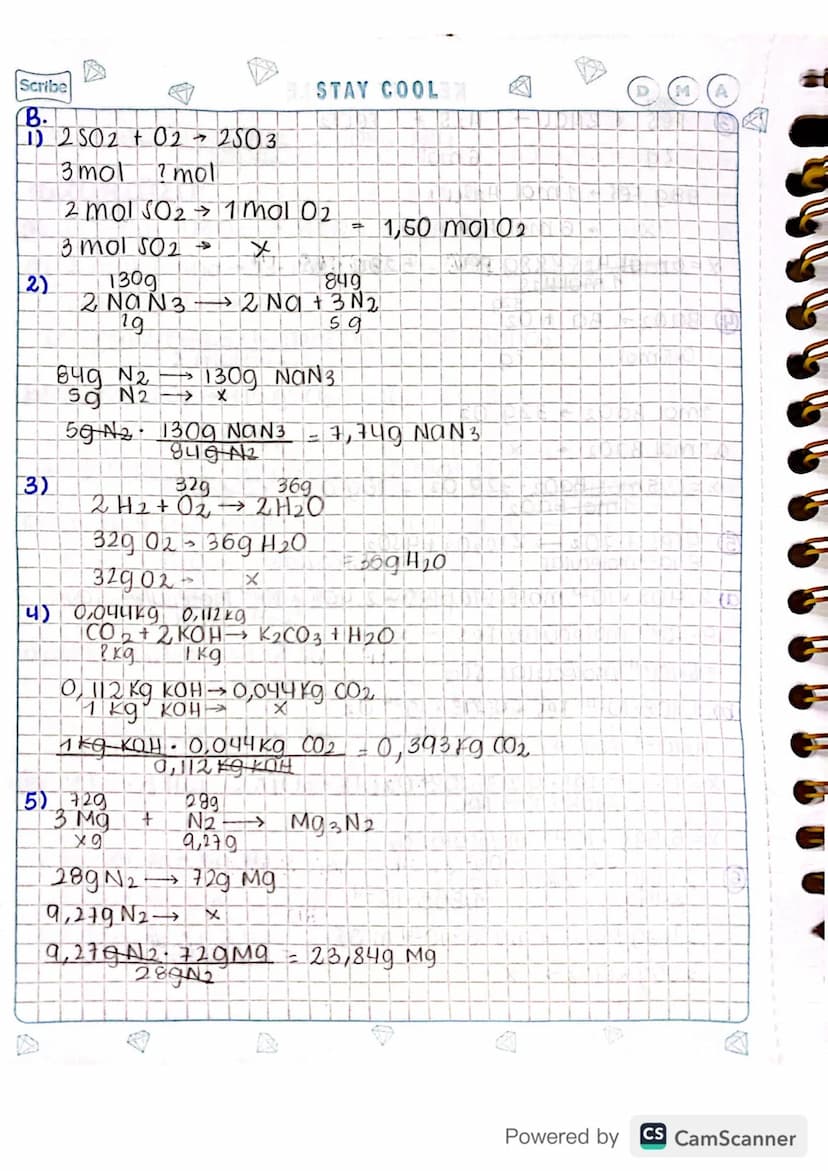 Scribe
STAY COOL
D M A
B.
1) 2SO2 + O2 → 2SO3
3mol ?mol
2 mol SO2 → 1 mol O2
= 1,50 mol O2
3 mol SO2 → x
2) 130g 84g
2 NaN3 → 2 Na + 3 N2
?g 5g
84g N2 → 130g NaN3
5g N2 → x
5g N2 · 130g NaN3 = 7,74g NaN3
84g N2
3) 32g 36g
2 H2 + O2 → 2H2O
32g O2 → 36g H2O
= 36g H2O
32g O2 → x
4) 0,044kg 0,112kg
CO2 + 2KOH → K2CO3 + H2O
?kg 1kg
0,112 kg KOH → 0,044kg CO2
1 kg KOH → x
1kg KOH · 0,044kg CO2 = 0,393kg CO2
0,112 kg KOH
5) 72g 28g
3 Mg + N2 → Mg3N2
xg 9,27g
28g N2 → 72g Mg
9,27g N2 → x
9,27g N2 · 72g Mg = 23,84g Mg
28g N2
Powered by CS CamScanner